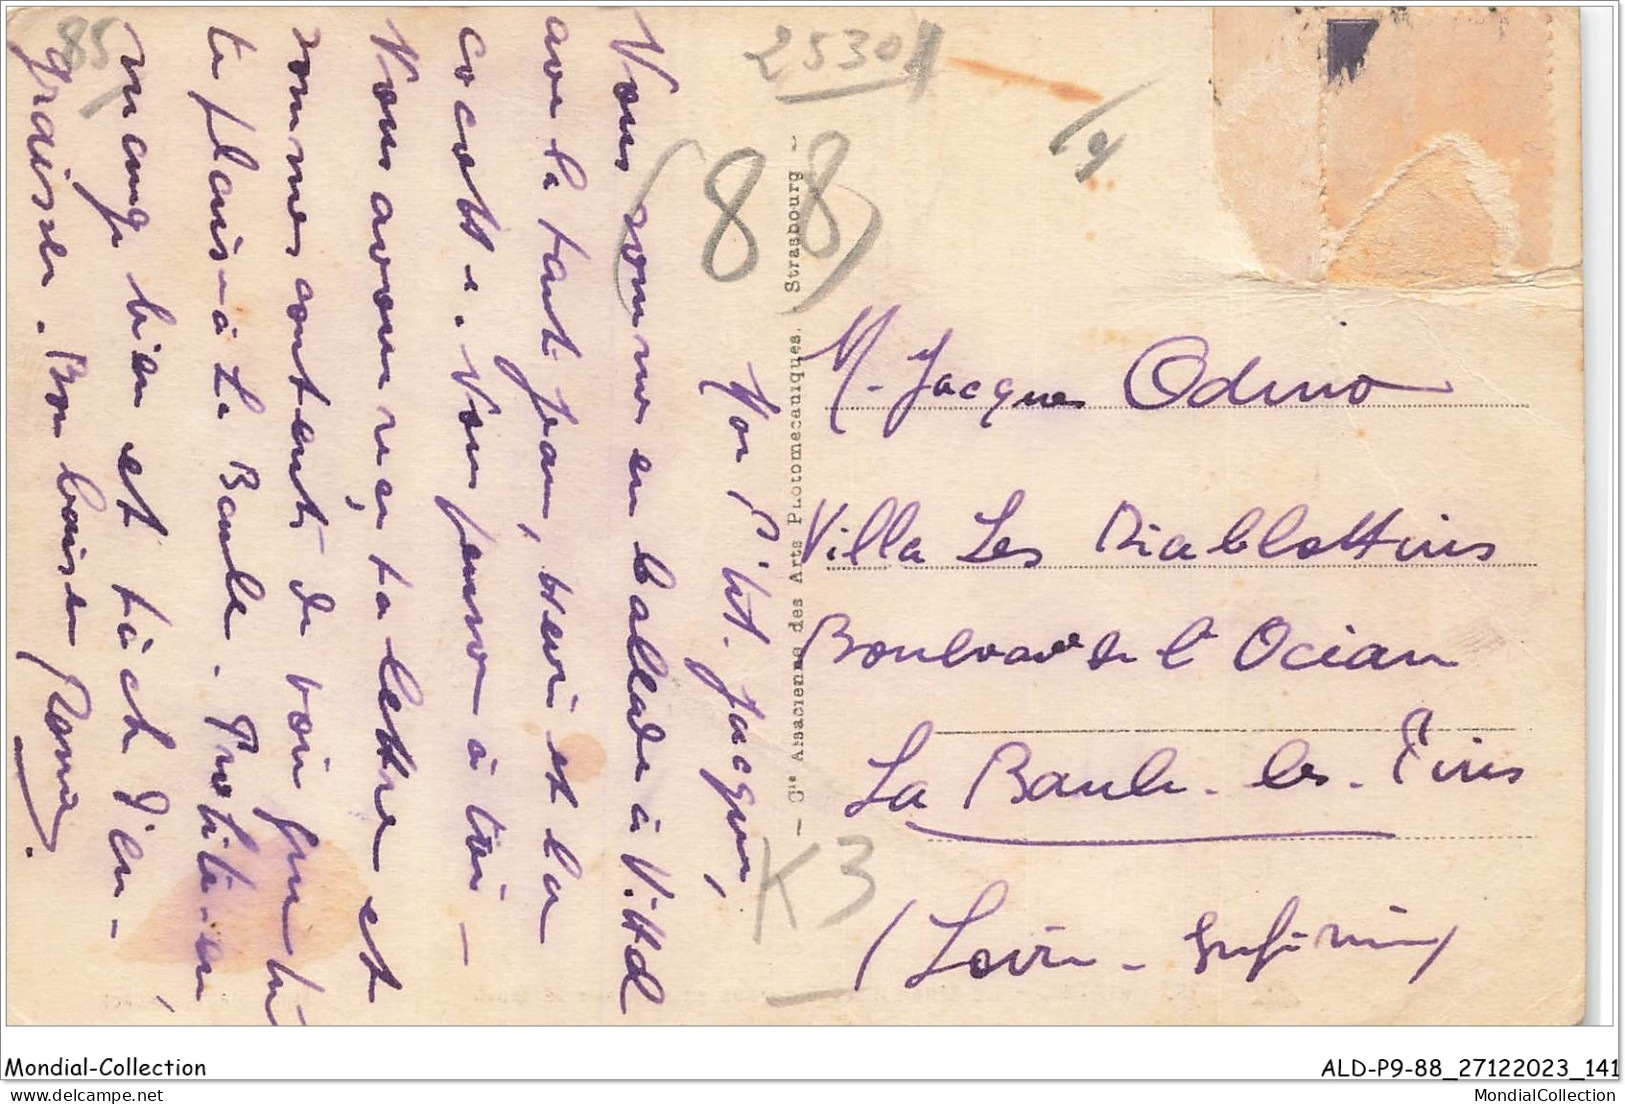 85
25301
(88)
Mon P'tit Jacques,
Nous sommes en ballade à Vittel
avec la tante Jean, Henri et la
cocotte. Nous pensons à toi -
Nous avons reçu ta lettre et
sommes contents de voir que tu
te plais à La Baule. Profites-en
mange bien et tâche d'en-
graisser. Bons baisers
Cie Alsacienne des Arts Photomécaniques, Strasbourg
K3
M. Jacques Odino
Villa Les Diablottins
Boulevard de l'Océan
La Baule-les-Pins
(Loire-Inférieure)
Mondial-Collection
ALD-P9-88_27122023_141
delcampe.net
MondialCollection